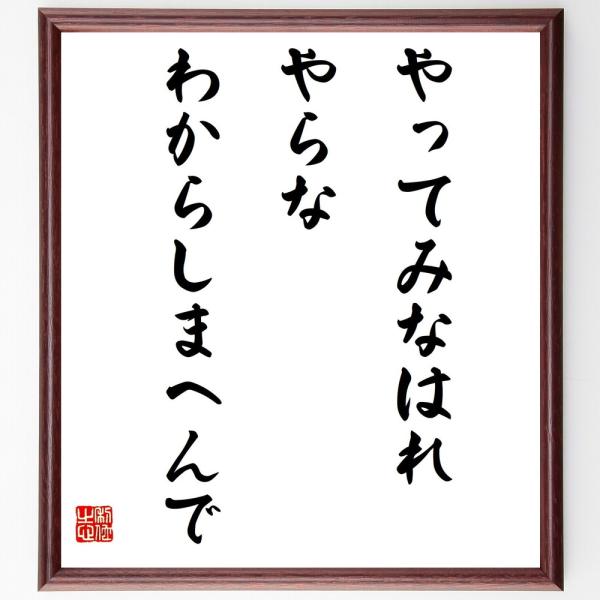 やってみなはれ
やらな
わからしまへんで